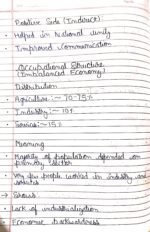 Positive Side (Indirect)
Helped in National Unity
Improved Communication
Occupational Structure
(Imbalanced Economy)
Distribution
Agriculture :- 70-75%
Industry :- 10%
Services :- 15%
Meaning
Majority of population depended on
primary sector
Very few people worked in industry and
services
→
Lack of industrialization
Economic backwardness